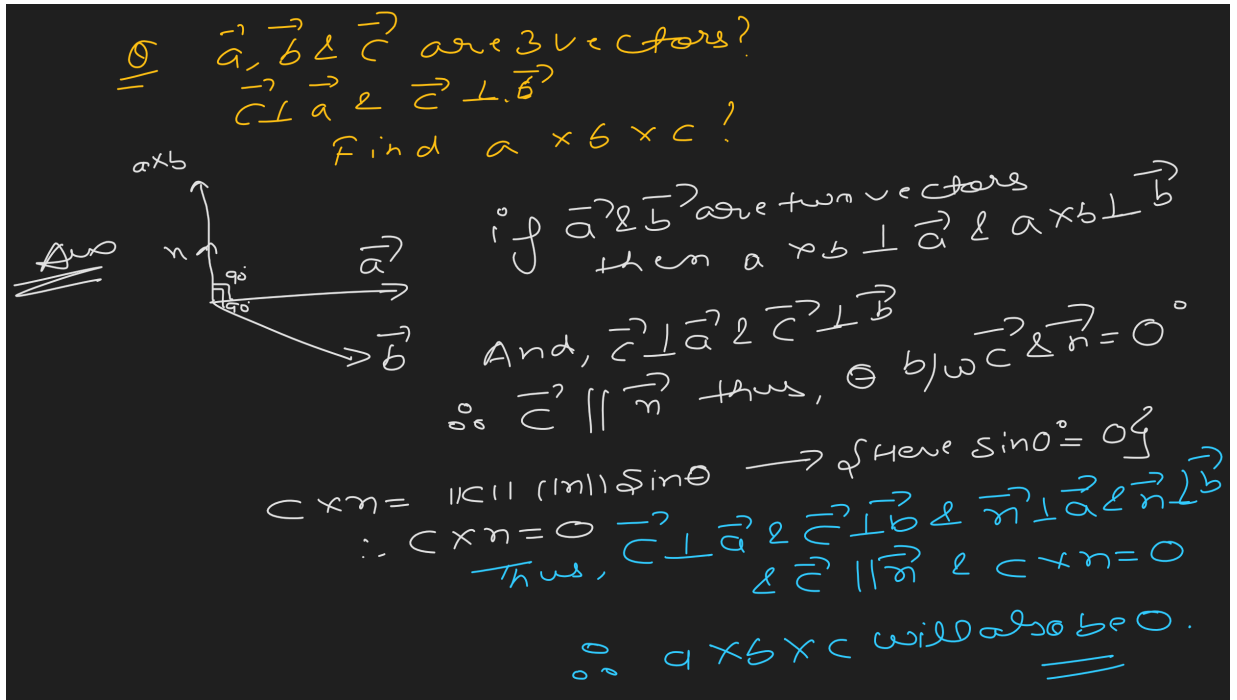 Q a⃗, b⃗ & c⃗ are 3 vectors?
c⃗ ⊥ a⃗ & c⃗ ⊥. b⃗
Find a × b × c?
a×b
n
90°
90°
a⃗
b⃗
Ans
if a⃗ & b⃗ are two vectors
then a × b ⊥ a⃗ & a × b ⊥ b⃗
And, c⃗ ⊥ a⃗ & c⃗ ⊥ b⃗
∴ c⃗ || n⃗ thus, θ b/w c⃗ & n⃗ = 0°
c × n = ||c|| ||n|| sinθ → {Here sin0° = 0}
∴ c × n = 0
Thus, c⃗ ⊥ a⃗ & c⃗ ⊥ b⃗ & n⃗ ⊥ a⃗ & n⃗ ⊥ b⃗
& c⃗ || n⃗ & c × n = 0
∴ a × b × c will also be 0.